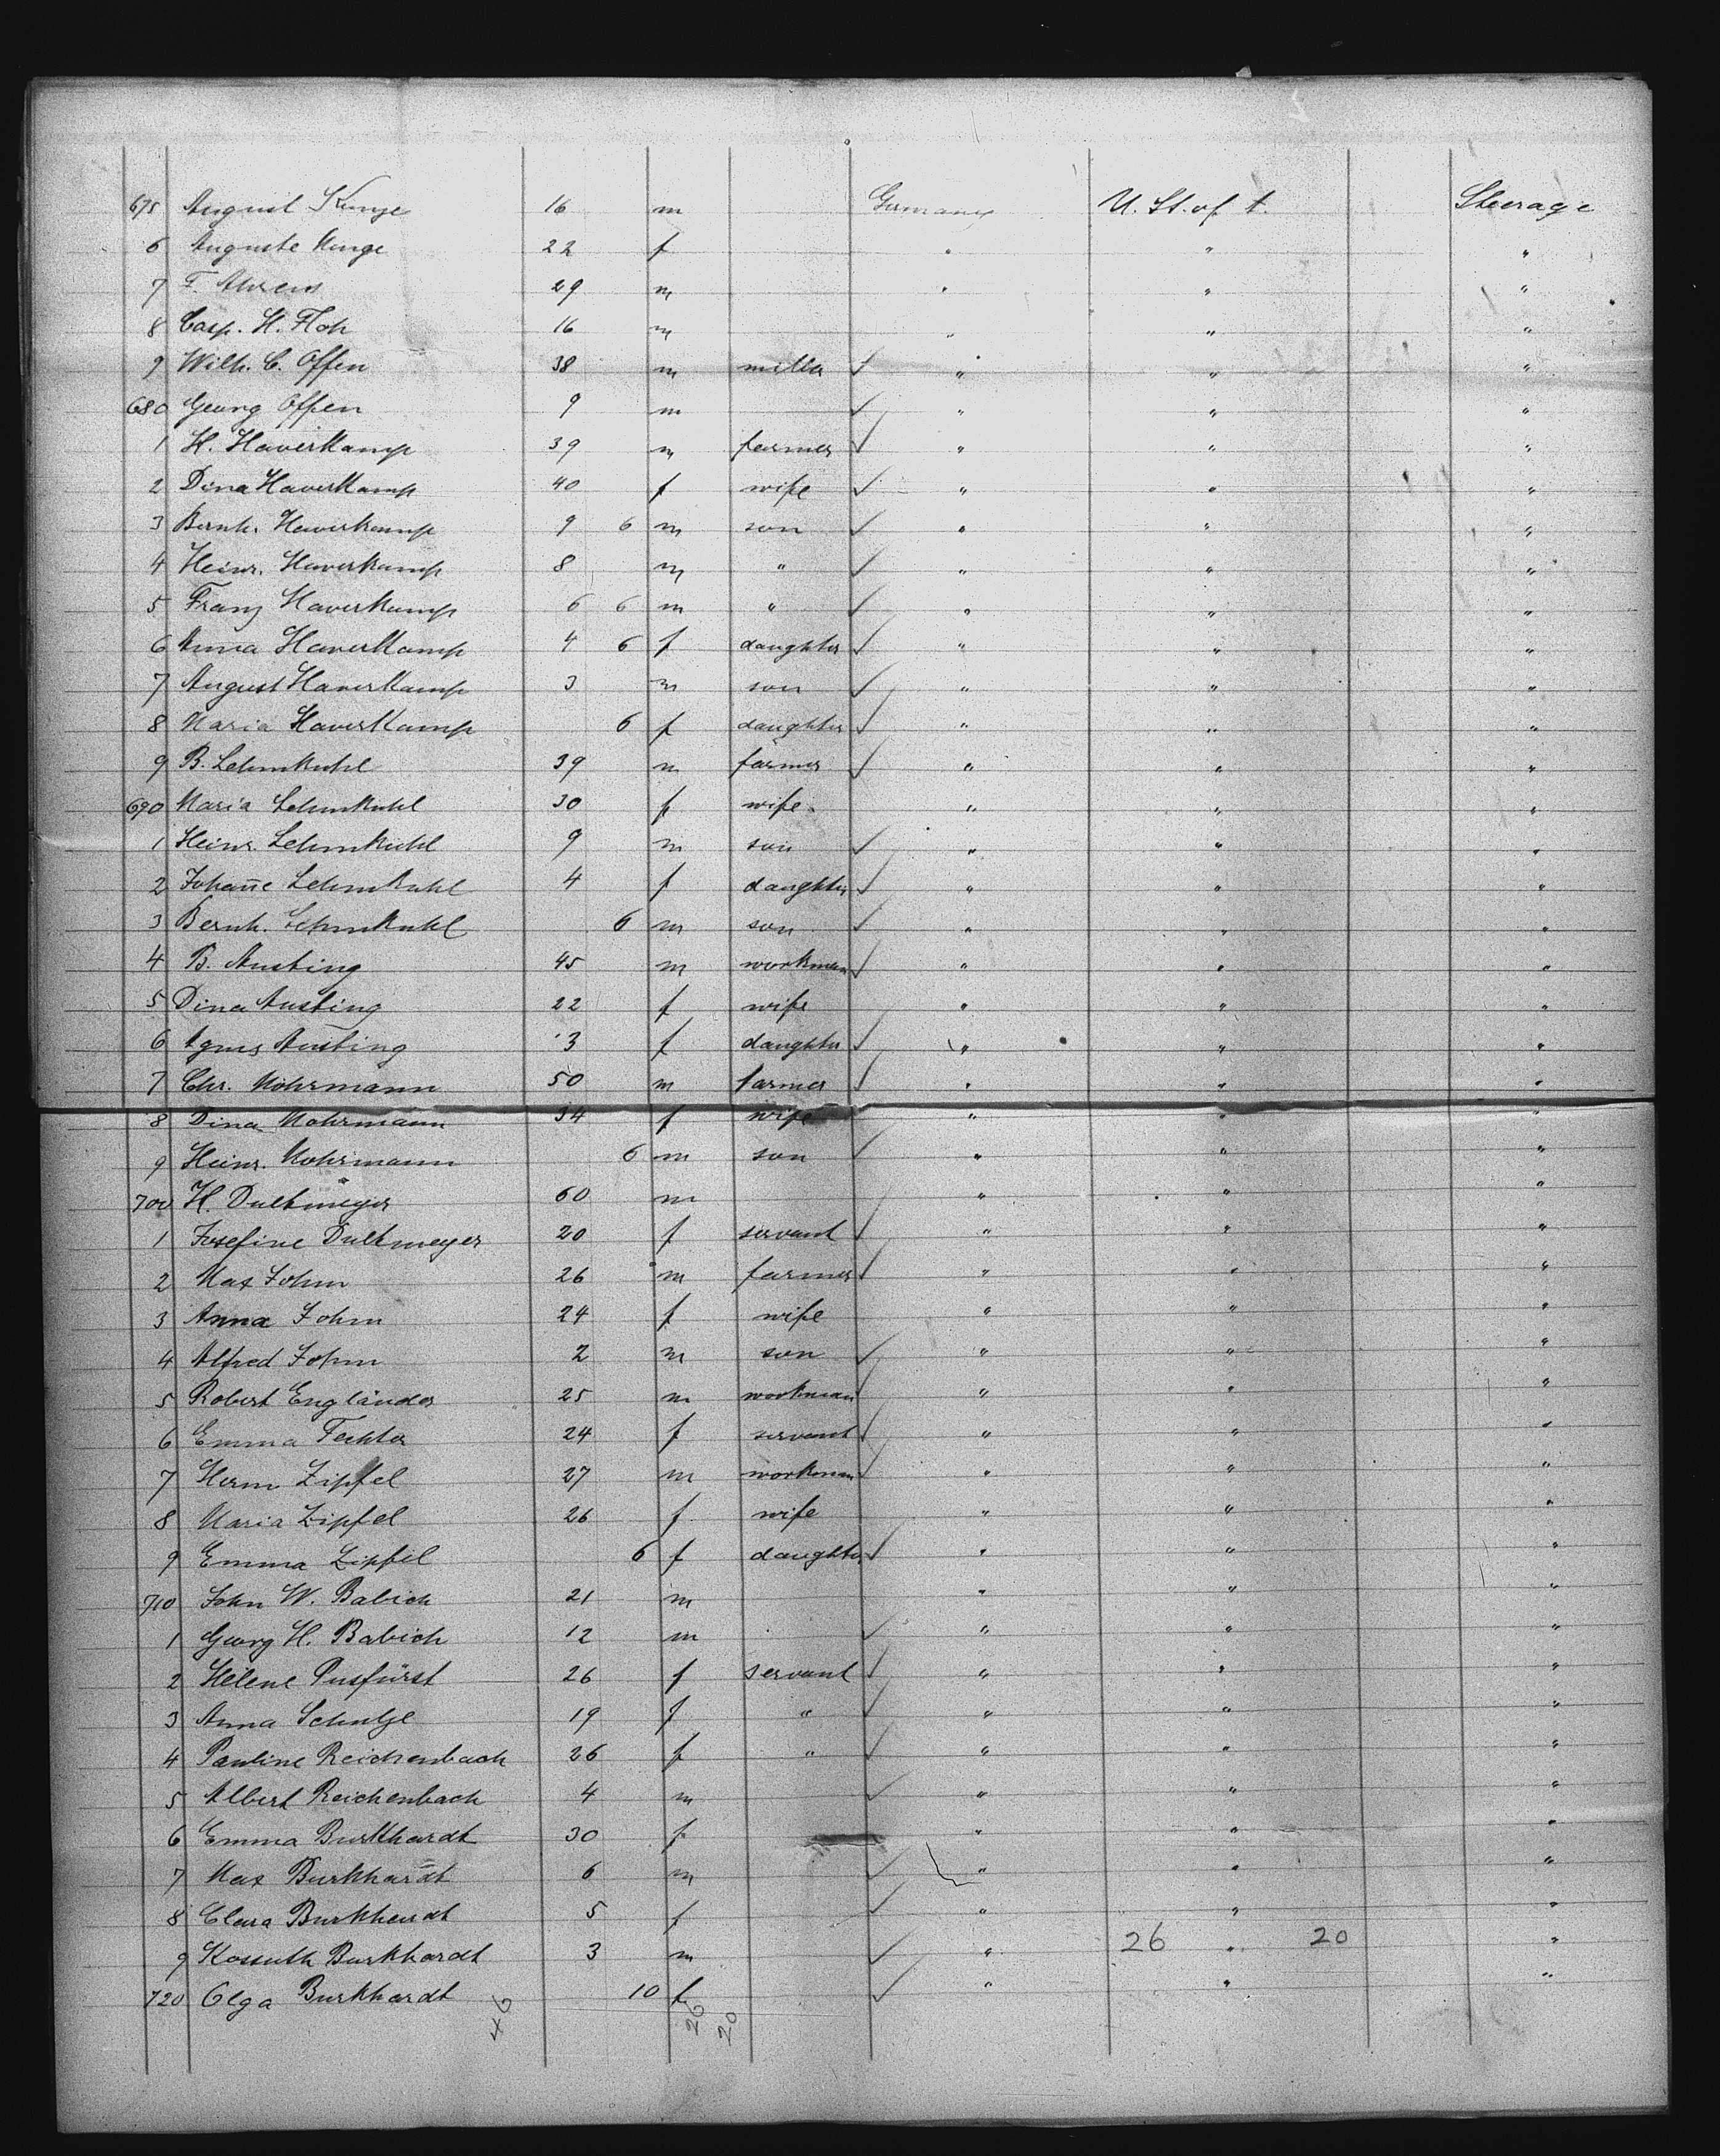 675 August Kunze 16 m Germany U. St. of A. Steerage
6 Auguste Kunze 22 f " " "
7 F. Ahrens 29 m " " "
8 Casp. H. Floh 16 m " " "
9 Wilh. C. Offen 38 m miller ✓ " " "
680 Georg Offen 9 m ✓ " " "
1 H. Haverkamp 39 m farmer ✓ " " "
2 Dina Haverkamp 40 f wife ✓ " " "
3 Bernh. Haverkamp 9 6 m son ✓ " " "
4 Heinr. Haverkamp 8 m " ✓ " " "
5 Franz Haverkamp 6 6 m " ✓ " " "
6 Anna Haverkamp 4 6 f daughter ✓ " " "
7 August Haverkamp 3 m son ✓ " " "
8 Maria Haverkamp 6 f daughter ✓ " " "
9 B. Lehmkuhl 39 m farmer ✓ " " "
690 Maria Lehmkuhl 30 f wife " " "
1 Heinr. Lehmkuhl 9 m son ✓ " " "
2 Johanne Lehmkuhl 4 f daughter ✓ " " "
3 Bernh. Lehmkuhl 6 m son ✓ " " "
4 B. Austing 45 m workman ✓ " " "
5 Dina Austing 22 f wife " " "
6 Agnes Austing 3 f daughter ✓ " " "
7 Chr. Mohrmann 50 m farmer ✓ " " "
8 Dina Mohrmann 34 f wife " " "
9 Heinr. Mohrmann 6 m son ✓ " " "
700 H. Dultmeyer 60 m " " "
1 Josefine Dultmeyer 20 f servant ✓ " " "
2 Max John 26 m farmer ✓ " " "
3 Anna John 24 f wife " " "
4 Alfred John 2 m son ✓ " " "
5 Robert Engländer 25 m workman ✓ " " "
6 Emma Fechter 24 f servant ✓ " " "
7 Herm Zipfel 27 m workman ✓ " " "
8 Maria Zipfel 26 f wife " " "
9 Emma Zipfel 6 f daughter ✓ " " "
710 John W. Babich 21 m " " "
1 Georg H. Babich 12 m ✓ " " "
2 Helene Pusfürst 26 f servant ✓ " " "
3 Anna Schulze 19 f " ✓ " " "
4 Pauline Reichenbach 26 f " ✓ " " "
5 Albert Reichenbach 4 m ✓ " " "
6 Emma Burkhardt 30 f " " "
7 Max Burkhardt 6 m ✓ " " "
8 Clara Burkhardt 5 f ✓ " " "
9 Kossuth Burkhardt 3 m ✓ " 26 " 20 "
720 Olga Burkhardt 10 f ✓ " " "
46 26 20